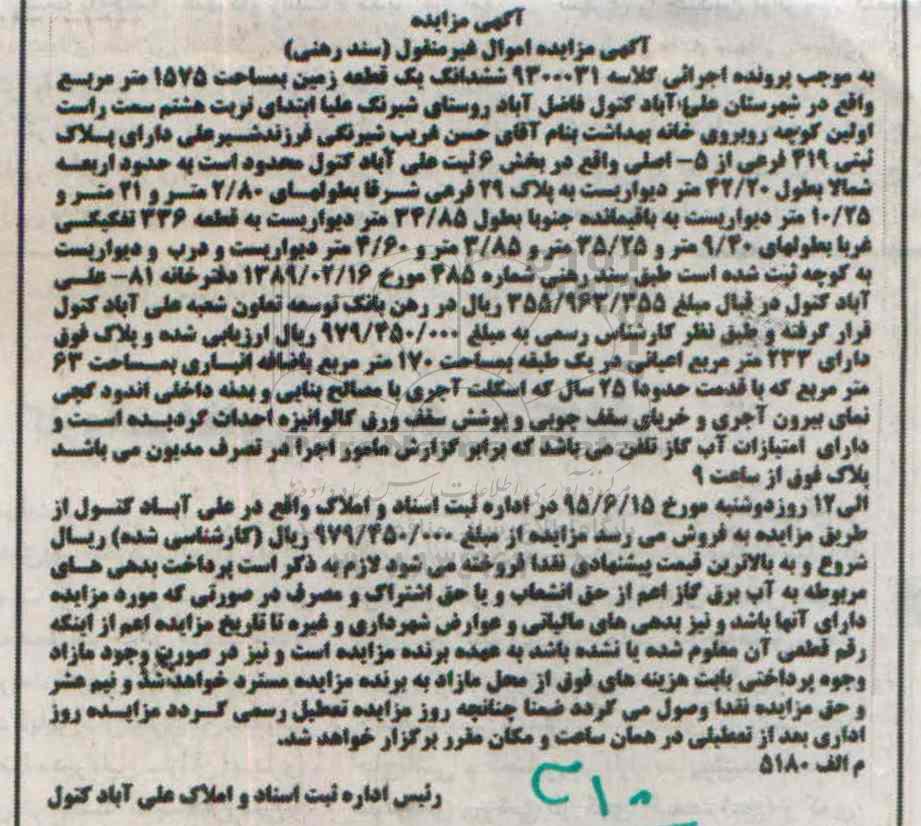 آگهی مزایده
آگهی مزایده اموال غیرمنقول (سند رهنی)
به موجب پرونده اجرائی کلاسه ۹۳۰۰۰۳۱ ششدانگ یک قطعه زمین بمساحت ۱۵۷۵ متر مربع
واقع در شهرستان علی آباد کتول فاضل آباد روستای شیرنگ علیا ابتدای تربت هشتم سمت راست
اولین کوچه روبروی خانه بهداشت بنام آقای حسن غریب شیرنگی فرزند شیرعلی دارای پلاک
ثبتی ۴۱۹ فرعی از ۵- اصلی واقع در بخش ۶ ثبت علی آباد کتول محدود است به حدود اربعه
شمالا بطول ۴۲/۲۰ متر دیواریست به پلاک ۲۹ فرعی شرقا بطولهای ۲/۸۰ متر و ۲۱ متر و
۱۰/۲۵ متر دیواریست به باقیمانده جنوبا بطول ۳۴/۸۵ متر دیواریست به قطعه ۳۳۶ تفکیکی
غربا بطولهای ۹/۴۰ متر و ۲۵/۲۵ متر و ۳/۸۵ متر و ۴/۶۰ متر دیواریست و درب و دیواریست
به کوچه ثبت شده است طبق سند رهنی شماره ۴۸۵ مورخ ۱۳۸۹/۰۲/۱۶ دفترخانه ۸۱- علی
آباد کتول در قبال مبلغ ۳۵۵/۹۶۳/۳۵۵ ریال در رهن بانک توسعه تعاون شعبه علی آباد کتول
قرار گرفته و طبق نظر کارشناس رسمی به مبلغ ۹۷۹/۴۵۰/۰۰۰ ریال ارزیابی شده و پلاک فوق
دارای ۲۳۳ متر مربع اعیانی در یک طبقه بمساحت ۱۷۰ متر مربع باضافه انباری بمساحت ۶۳
متر مربع که با قدمت حدودا ۲۵ سال که اسکلت آجری با مصالح بنایی و بدنه داخلی اندود گچی
نمای بیرون آجری و خرپای سقف چوبی و پوشش سقف ورق گالوانیزه احداث گردیده است و
دارای امتیازات آب گاز تلفن می باشد که برابر گزارش مامور اجرا در تصرف مدیون می باشد
پلاک فوق از ساعت ۹
الی۱۲ روز دوشنبه مورخ ۹۵/۶/۱۵ در اداره ثبت اسناد و املاک واقع در علی آباد کتول از
طریق مزایده به فروش می رسد مزایده از مبلغ ۹۷۹/۴۵۰/۰۰۰ ریال (کارشناسی شده) ریال
شروع و به بالاترین قیمت پیشنهادی نقدا فروخته می شود لازم به ذکر است پرداخت بدهی های
مربوطه به آب برق گاز اعم از حق انشعاب و یا حق اشتراک و مصرف در صورتی که مورد مزایده
دارای آنها باشد و نیز بدهی های مالیاتی و عوارض شهرداری و غیره تا تاریخ مزایده اعم از اینکه
رقم قطعی آن معلوم شده یا نشده باشد به عهده برنده مزایده است و نیز در صورت وجود مازاد
وجوه پرداختی بابت هزینه های فوق از محل مازاد به برنده مزایده مسترد خواهد شد و نیم عشر
و حق مزایده نقدا وصول می گردد ضمنا چنانچه روز مزایده تعطیل رسمی گردد مزایده روز
اداری بعد از تعطیلی در همان ساعت و مکان مقرر برگزار خواهد شد.
م الف ۵۱۸۰
رئیس اداره ثبت اسناد و املاک علی آباد کتول